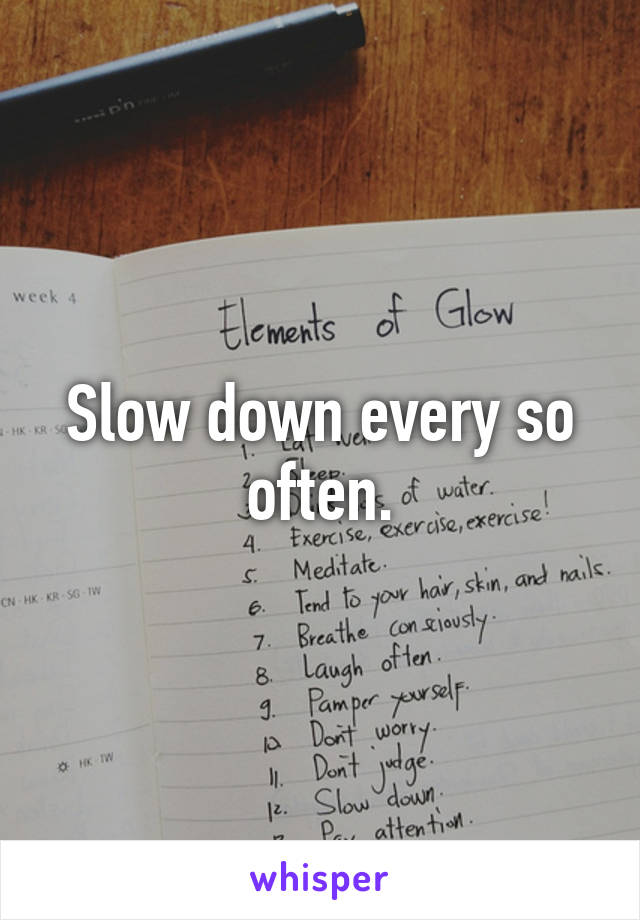 week 4
Elements of Glow
Slow down every so
often.
HK · KR · SG
1. Eat
2. Sleep.
3. of water.
4. Exercise, exercise, exercise!
5. Meditate.
CN · HK · KR · SG · TW
6. Tend to your hair, skin, and nails.
7. Breathe consciously.
8. Laugh often.
9. Pamper yourself.
10 Don't worry.
HK · TW
11. Don't judge.
12. Slow down.
Pay attention.
whisper